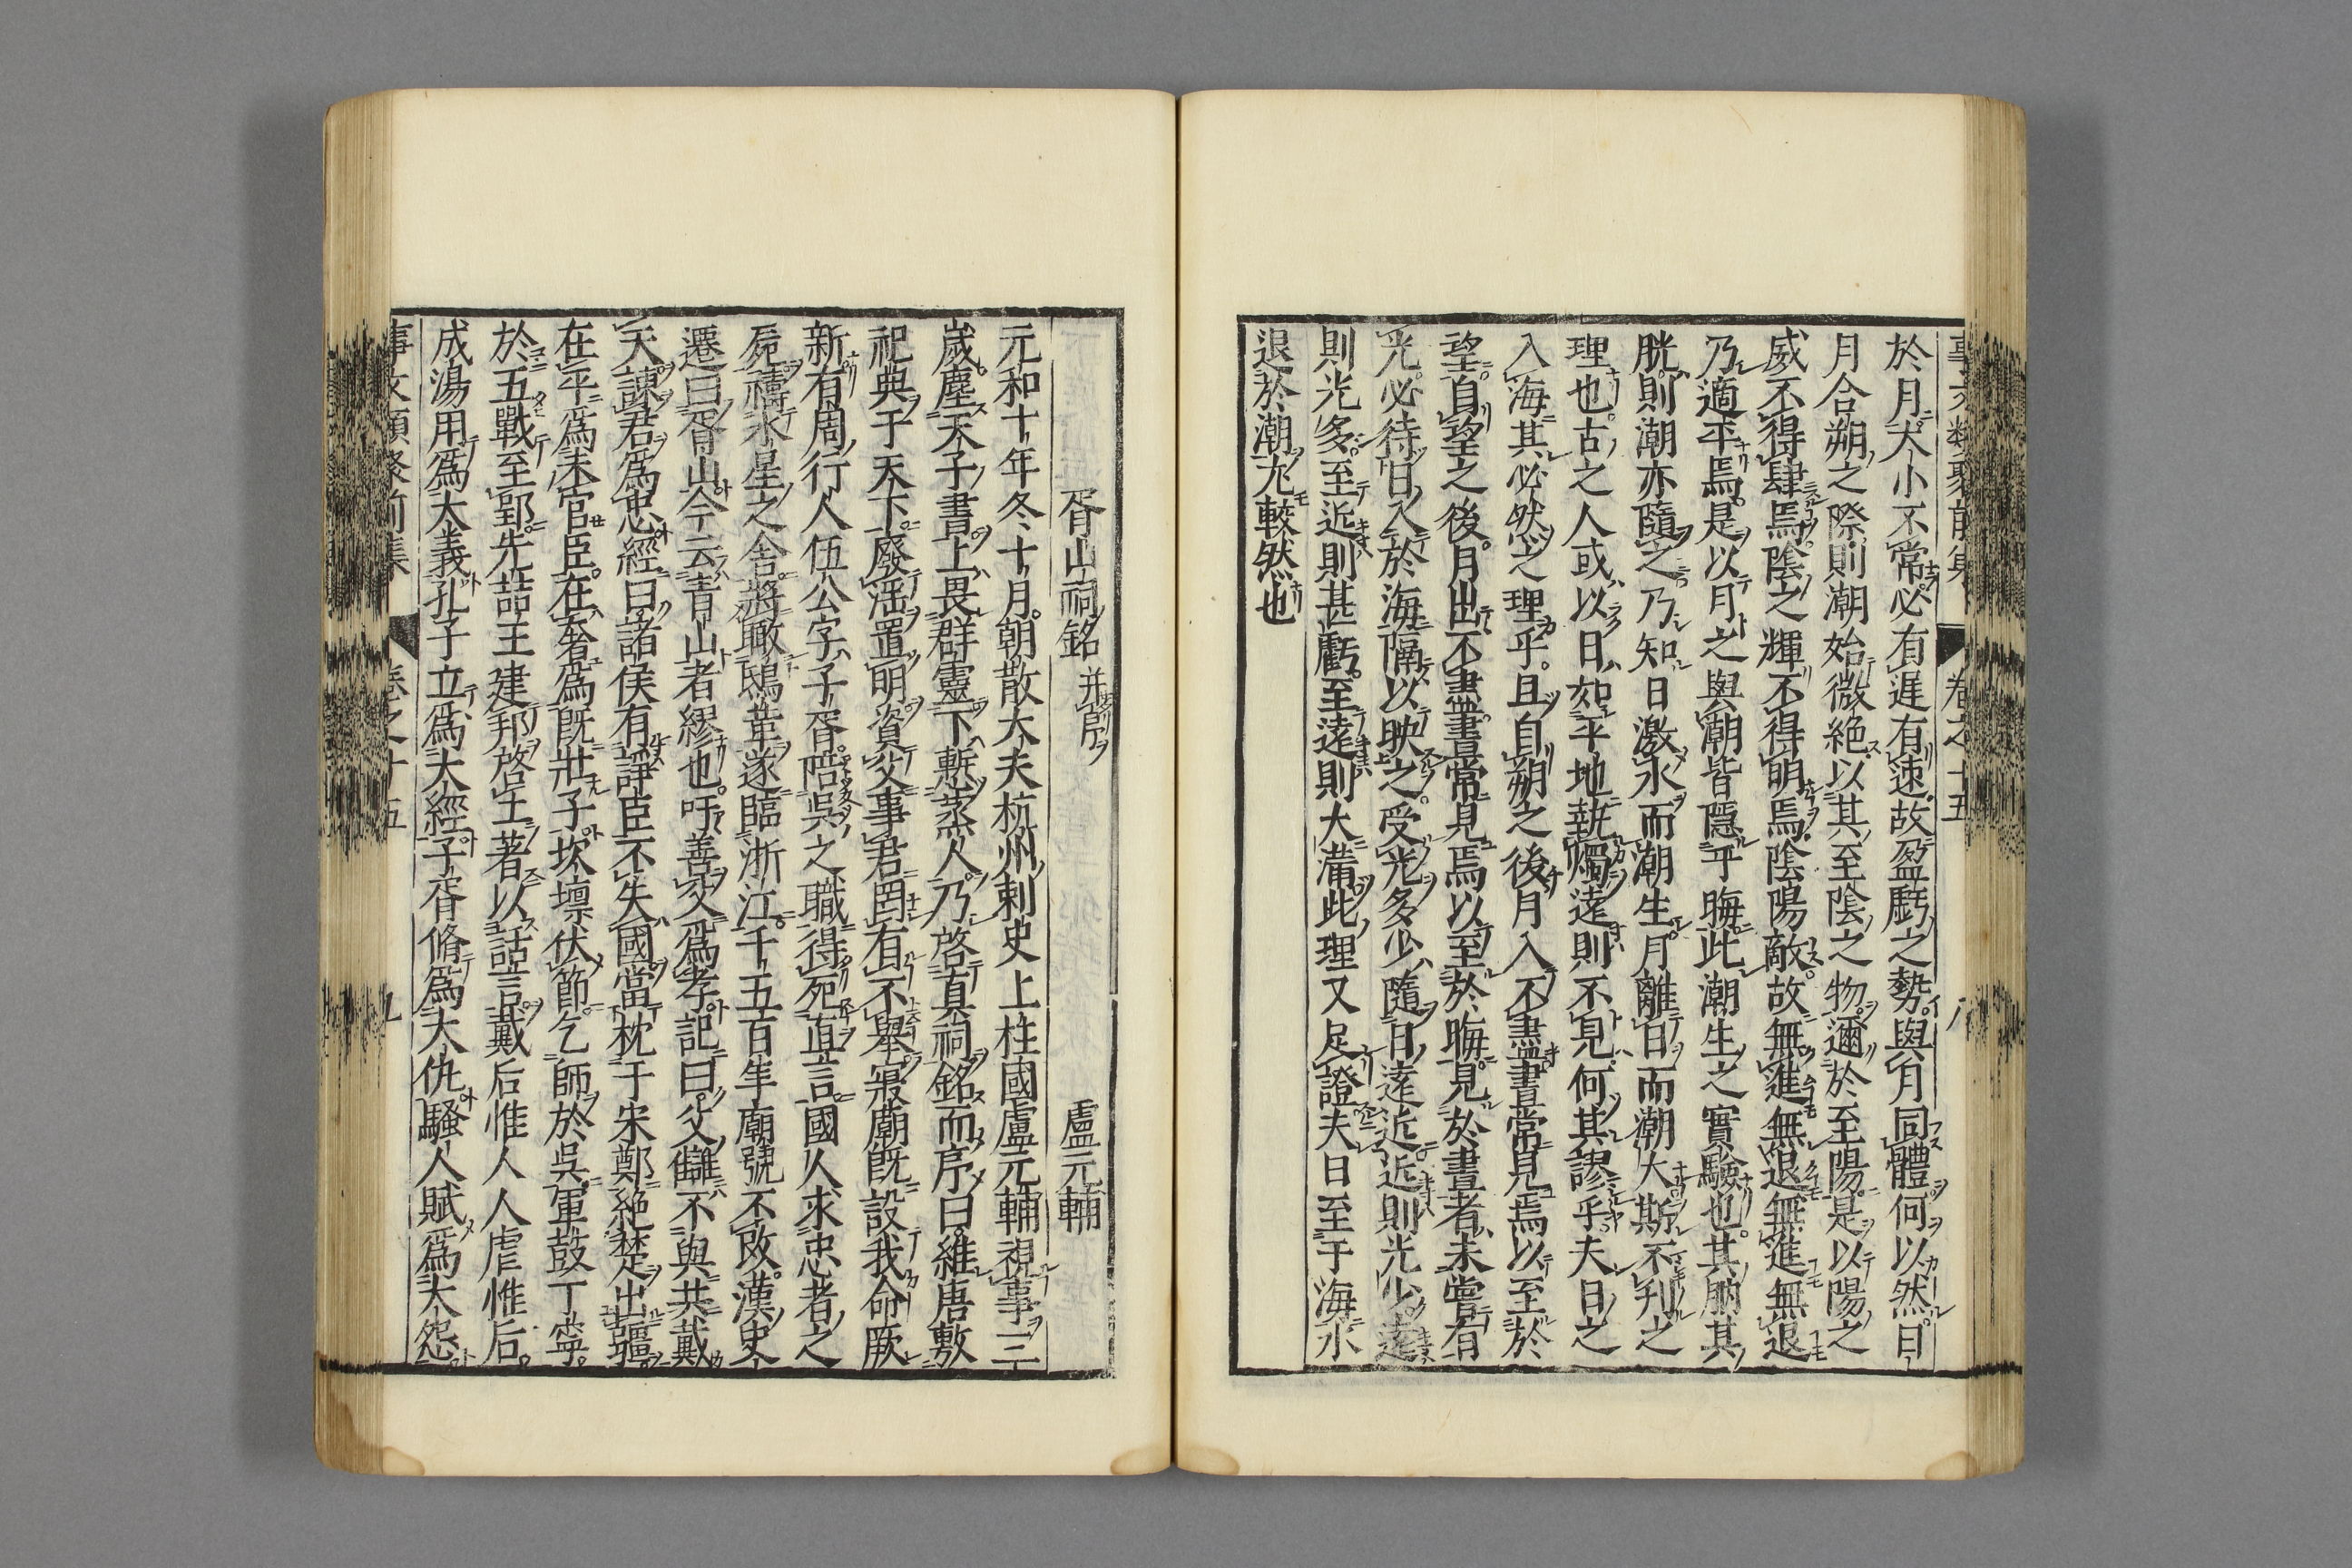 事文類聚前集 卷之十五 八
於月大小不常必有遅有速故盈虧之勢與月同體何以然日
月合朔之際則潮始微絶以其至陰之物邇於至陽是以陽之
威不得肆焉陰之輝不得明焉陰陽敵故無進無退無進無退
乃適平焉是以月之與潮皆隱乎晦此潮生之實驗也其朒其
朓則潮亦隨之乃知日激水而潮生月離日而潮大斯不刋之
理也古之人或以日如平地執燭遠則不見何其謬乎夫日之
入海其必然之理乎且自朔之後月入不盡晝常見焉以至於
望自望之後月出不盡晝常見焉以至於晦見於晝者未嘗有
光必待日入於海隔以映之受光多少隨日遠近近則光少遠
則光多至近則甚虧至遠則大滿此理又足證夫日至于海水
退於潮尤較然也
胥山祠銘 并序 盧元輔
元和十年冬十月朝散大夫杭州刺史上柱國盧元輔視事三
嵗塵天子書上畏群靈下慙蒸人乃啓眞祠銘而序曰維唐敷
祀典于天下廢淫置明資父事君罔有不舉寢廟旣設我命厥
新有周行人伍公字子胥陪吳之職得死直言國人求忠者之
屍禱水星之舎將瞰鴟革遂臨浙江千五百年廟號不改漢史
遷曰胥山今云青山者繆也吁善父爲孝記曰父讎不與共戴
天諫君爲忠經曰諸侯有諍臣不失國當枕于宋鄭絶楚出疆
在平爲未宦臣在奢爲旣壯子坎壇伏節乞師於吳軍鼓丁寧
於五戰至郢先喆王建邦啓土著以話言戴后惟人人虐惟后
成湯用爲大義孔子立爲大經子胥脩爲大仇騷人賦爲大怨
事文類聚前集 卷之十五 九